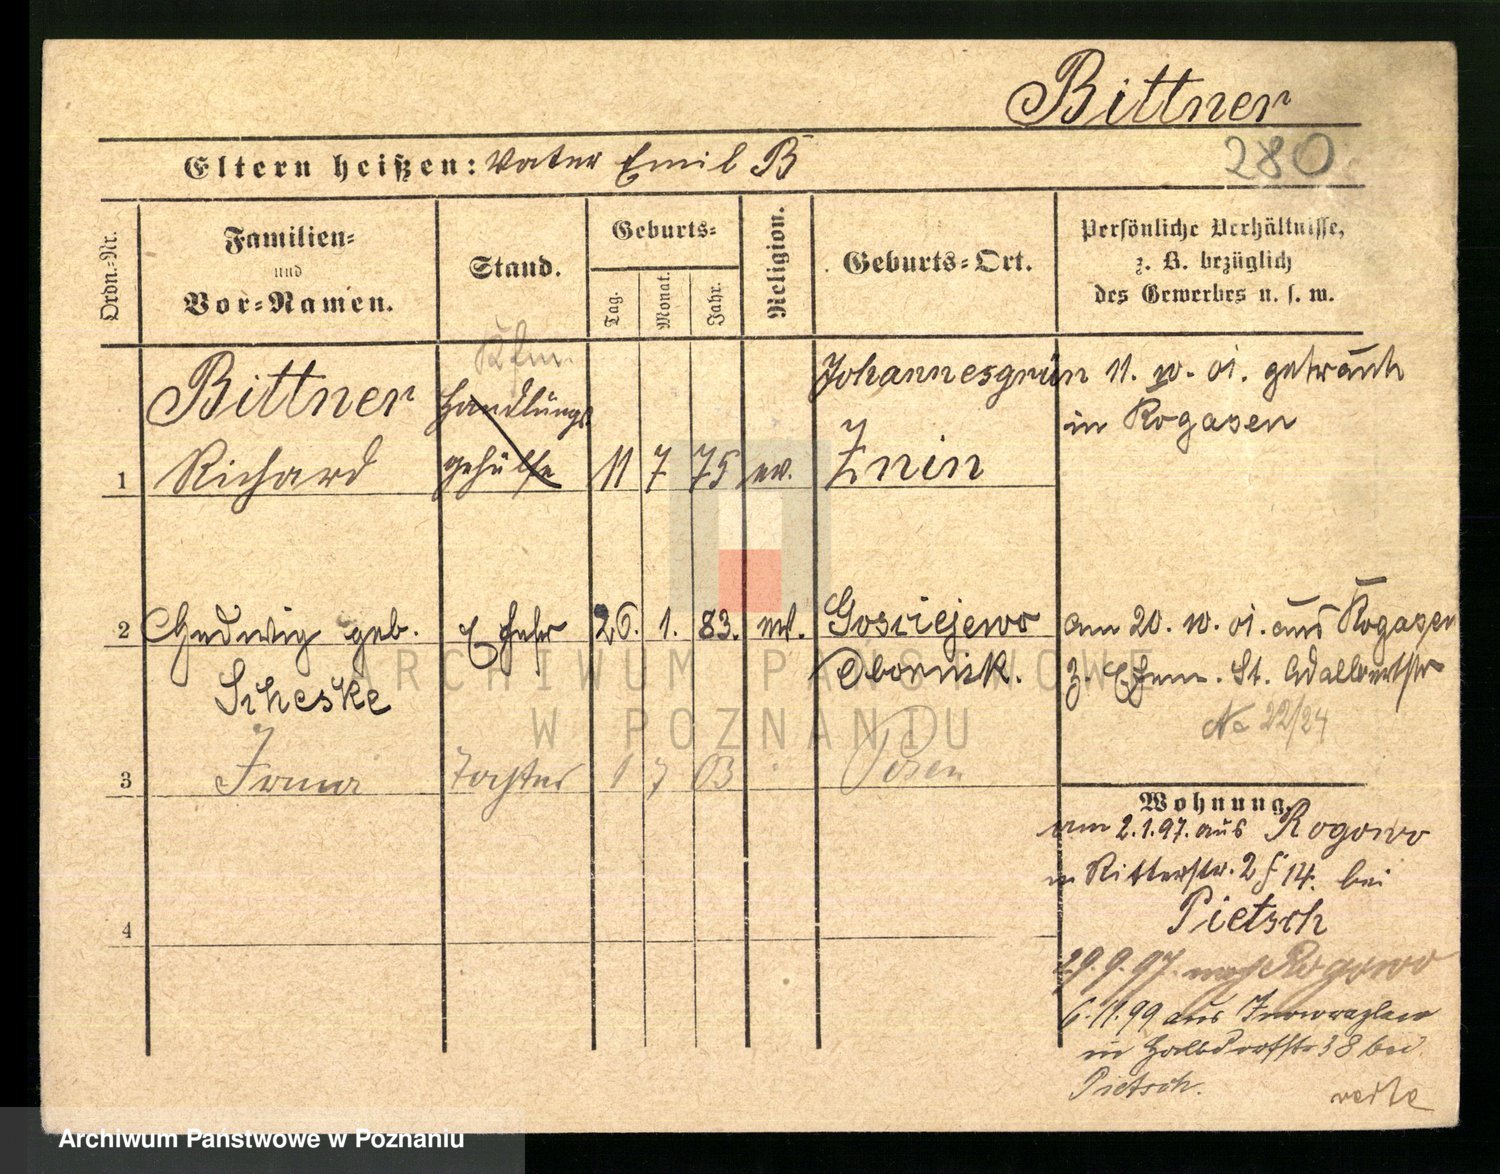 Bittner
280
Eltern heißen: Vater Emil B
Ordn.-Nr.
Familien-
und
Vor-Namen.
Stand.
Geburts-
Tag.
Monat.
Jahr.
Religion.
Geburts-Ort.
Persönliche Verhältnisse,
z. B. bezüglich
des Gewerbes u. s. w.
Kfm.
1
Bittner
Richard
Handlungs
gehülfe
11
7
75
ev.
Johannesgrün
Znin
11. 10. 01. getraut
in Rogasen
2
Hedwig geb.
Scheske
Ehefr
26.
1.
83.
ev.
Gosciejewo
Obornik.
am 20. 10. 01. aus Rogasen
z. Ehem. St. Adalbertstr
No 22/24
ARCHIWUM PAŃSTWOWE
W POZNANIU
3
Irma
Tochter
1
7
03
Posen
4
Wohnung.
am 2.1.97. aus Rogowo
n Ritterstr. 2 14. bei
Pietsch
29. 9. 97. nach Rogowo
6. 11. 99 aus Inowrazlaw
in Halbdorfstr 38 bei
Pietsch.
Archiwum Państwowe w Poznaniu